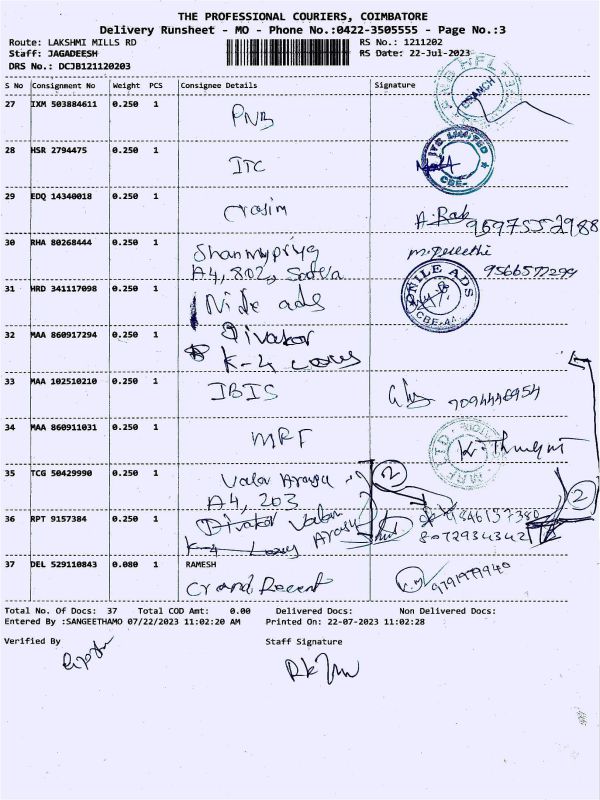 THE PROFESSIONAL COURIERS, COIMBATORE
Delivery Runsheet - MO - Phone No.:0422-3505555 - Page No.:3
Route: LAKSHMI MILLS RD RS No.: 1211202
Staff: JAGADEESH RS Date: 22-Jul-2023
DRS No.: DCJB121120203
S No Consignment No Weight PCS Consignee Details Signature
27 IXM 503884611 0.250 1 PNB
PNB HFL
BRANCH
28 HSR 2794475 0.250 1 ITC
ITC LIMITED
CBE-
29 EDQ 14340018 0.250 1 Crasim
30 RHA 80268444 0.250 1 Shanmypriya
A4, 802,
9566577299
31 HRD 341117098 0.250 1 Nile ads
NILE ADS
CBE-44
32 MAA 860917294 0.250 1 Divakar
K-4
33 MAA 102510210 0.250 1 IBIS
34 MAA 860911031 0.250 1 MRF
MRF LTD
35 TCG 50429990 0.250 1 Valar Arasu
A4, 203
2
2
36 RPT 9157384 0.250 1 Divakar Valar
K-4 Arasu
8072934342
37 DEL 529110843 0.080 1 RAMESH
Grand Recent
9791979940
Total No. Of Docs: 37 Total COD Amt: 0.00 Delivered Docs: Non Delivered Docs:
Entered By :SANGEETHAMO 07/22/2023 11:02:20 AM Printed On: 22-07-2023 11:02:28
Verified By Staff Signature